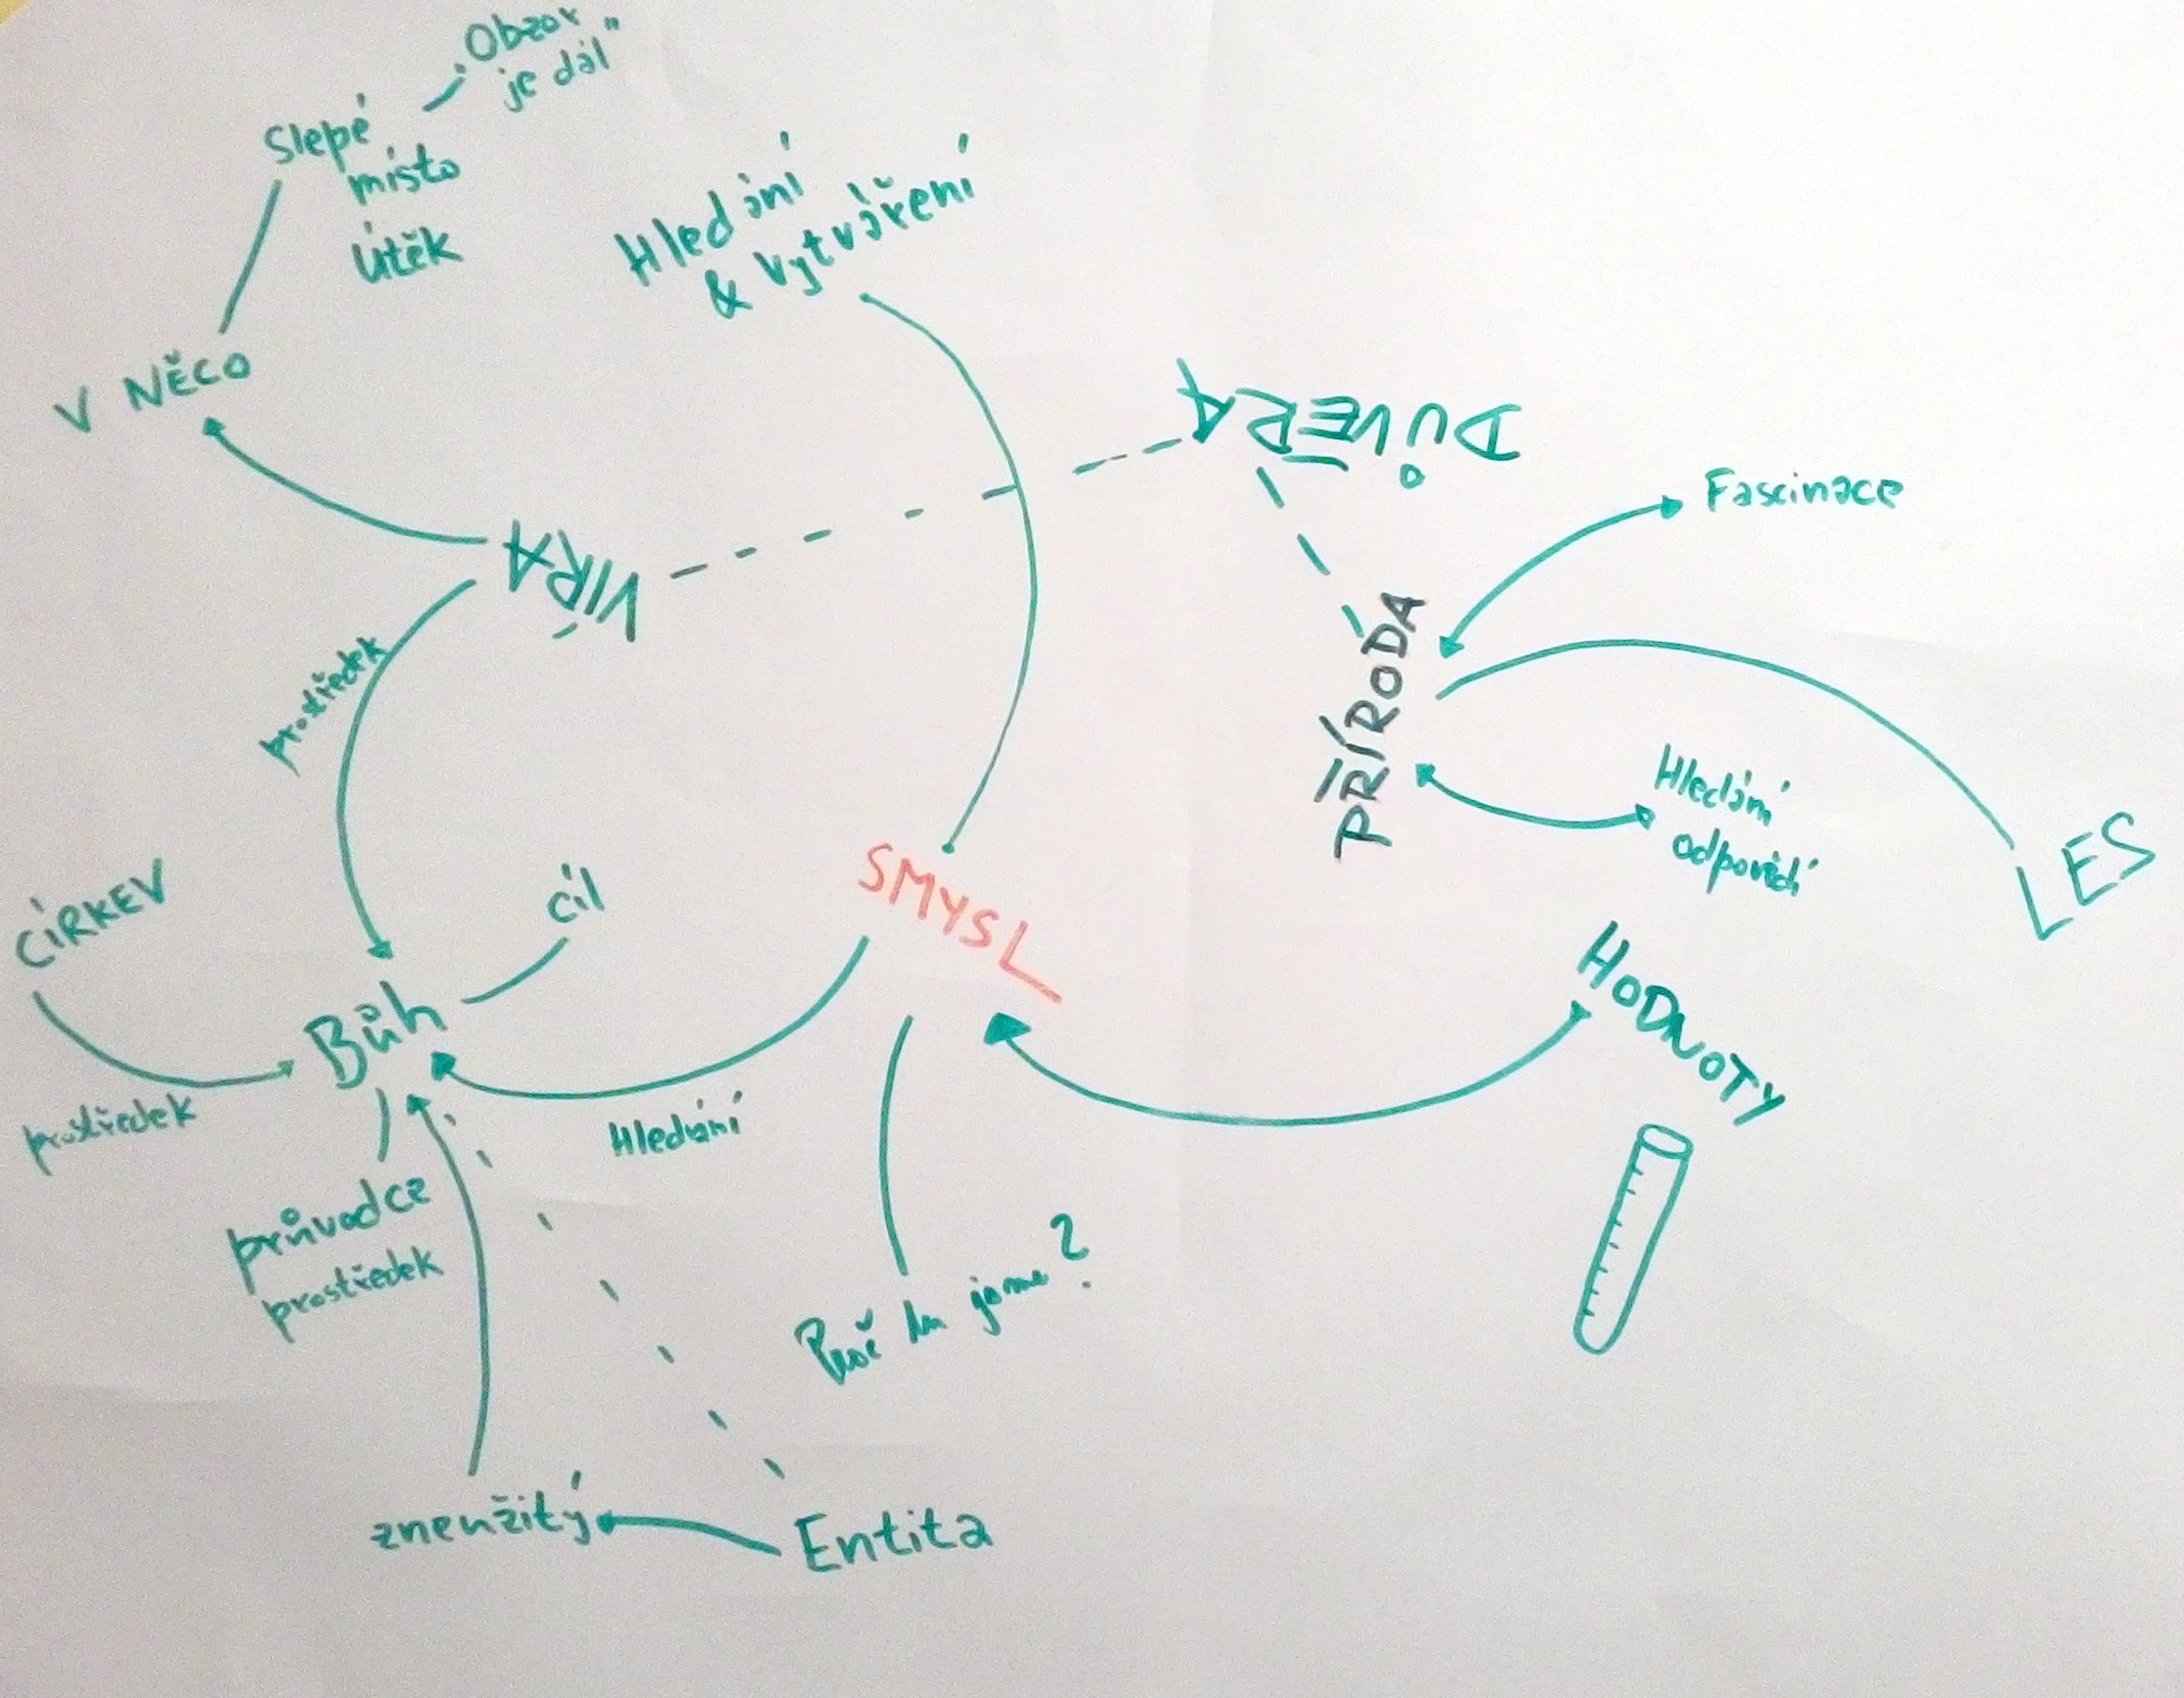 Obzor
je dál"
Slepé
místo
Útěk
Hledání
& Vytváření
V NĚCO
DŮVĚRA
Fascinace
VÍRA
prostředek
PŘÍRODA
Hledání
odpovědí
LES
CÍRKEV
cíl
SMYSL
HODNOTY
Bůh
prostředek
Hledání
průvodce
prostředek
Proč tu jsme?
zneužitý
Entita